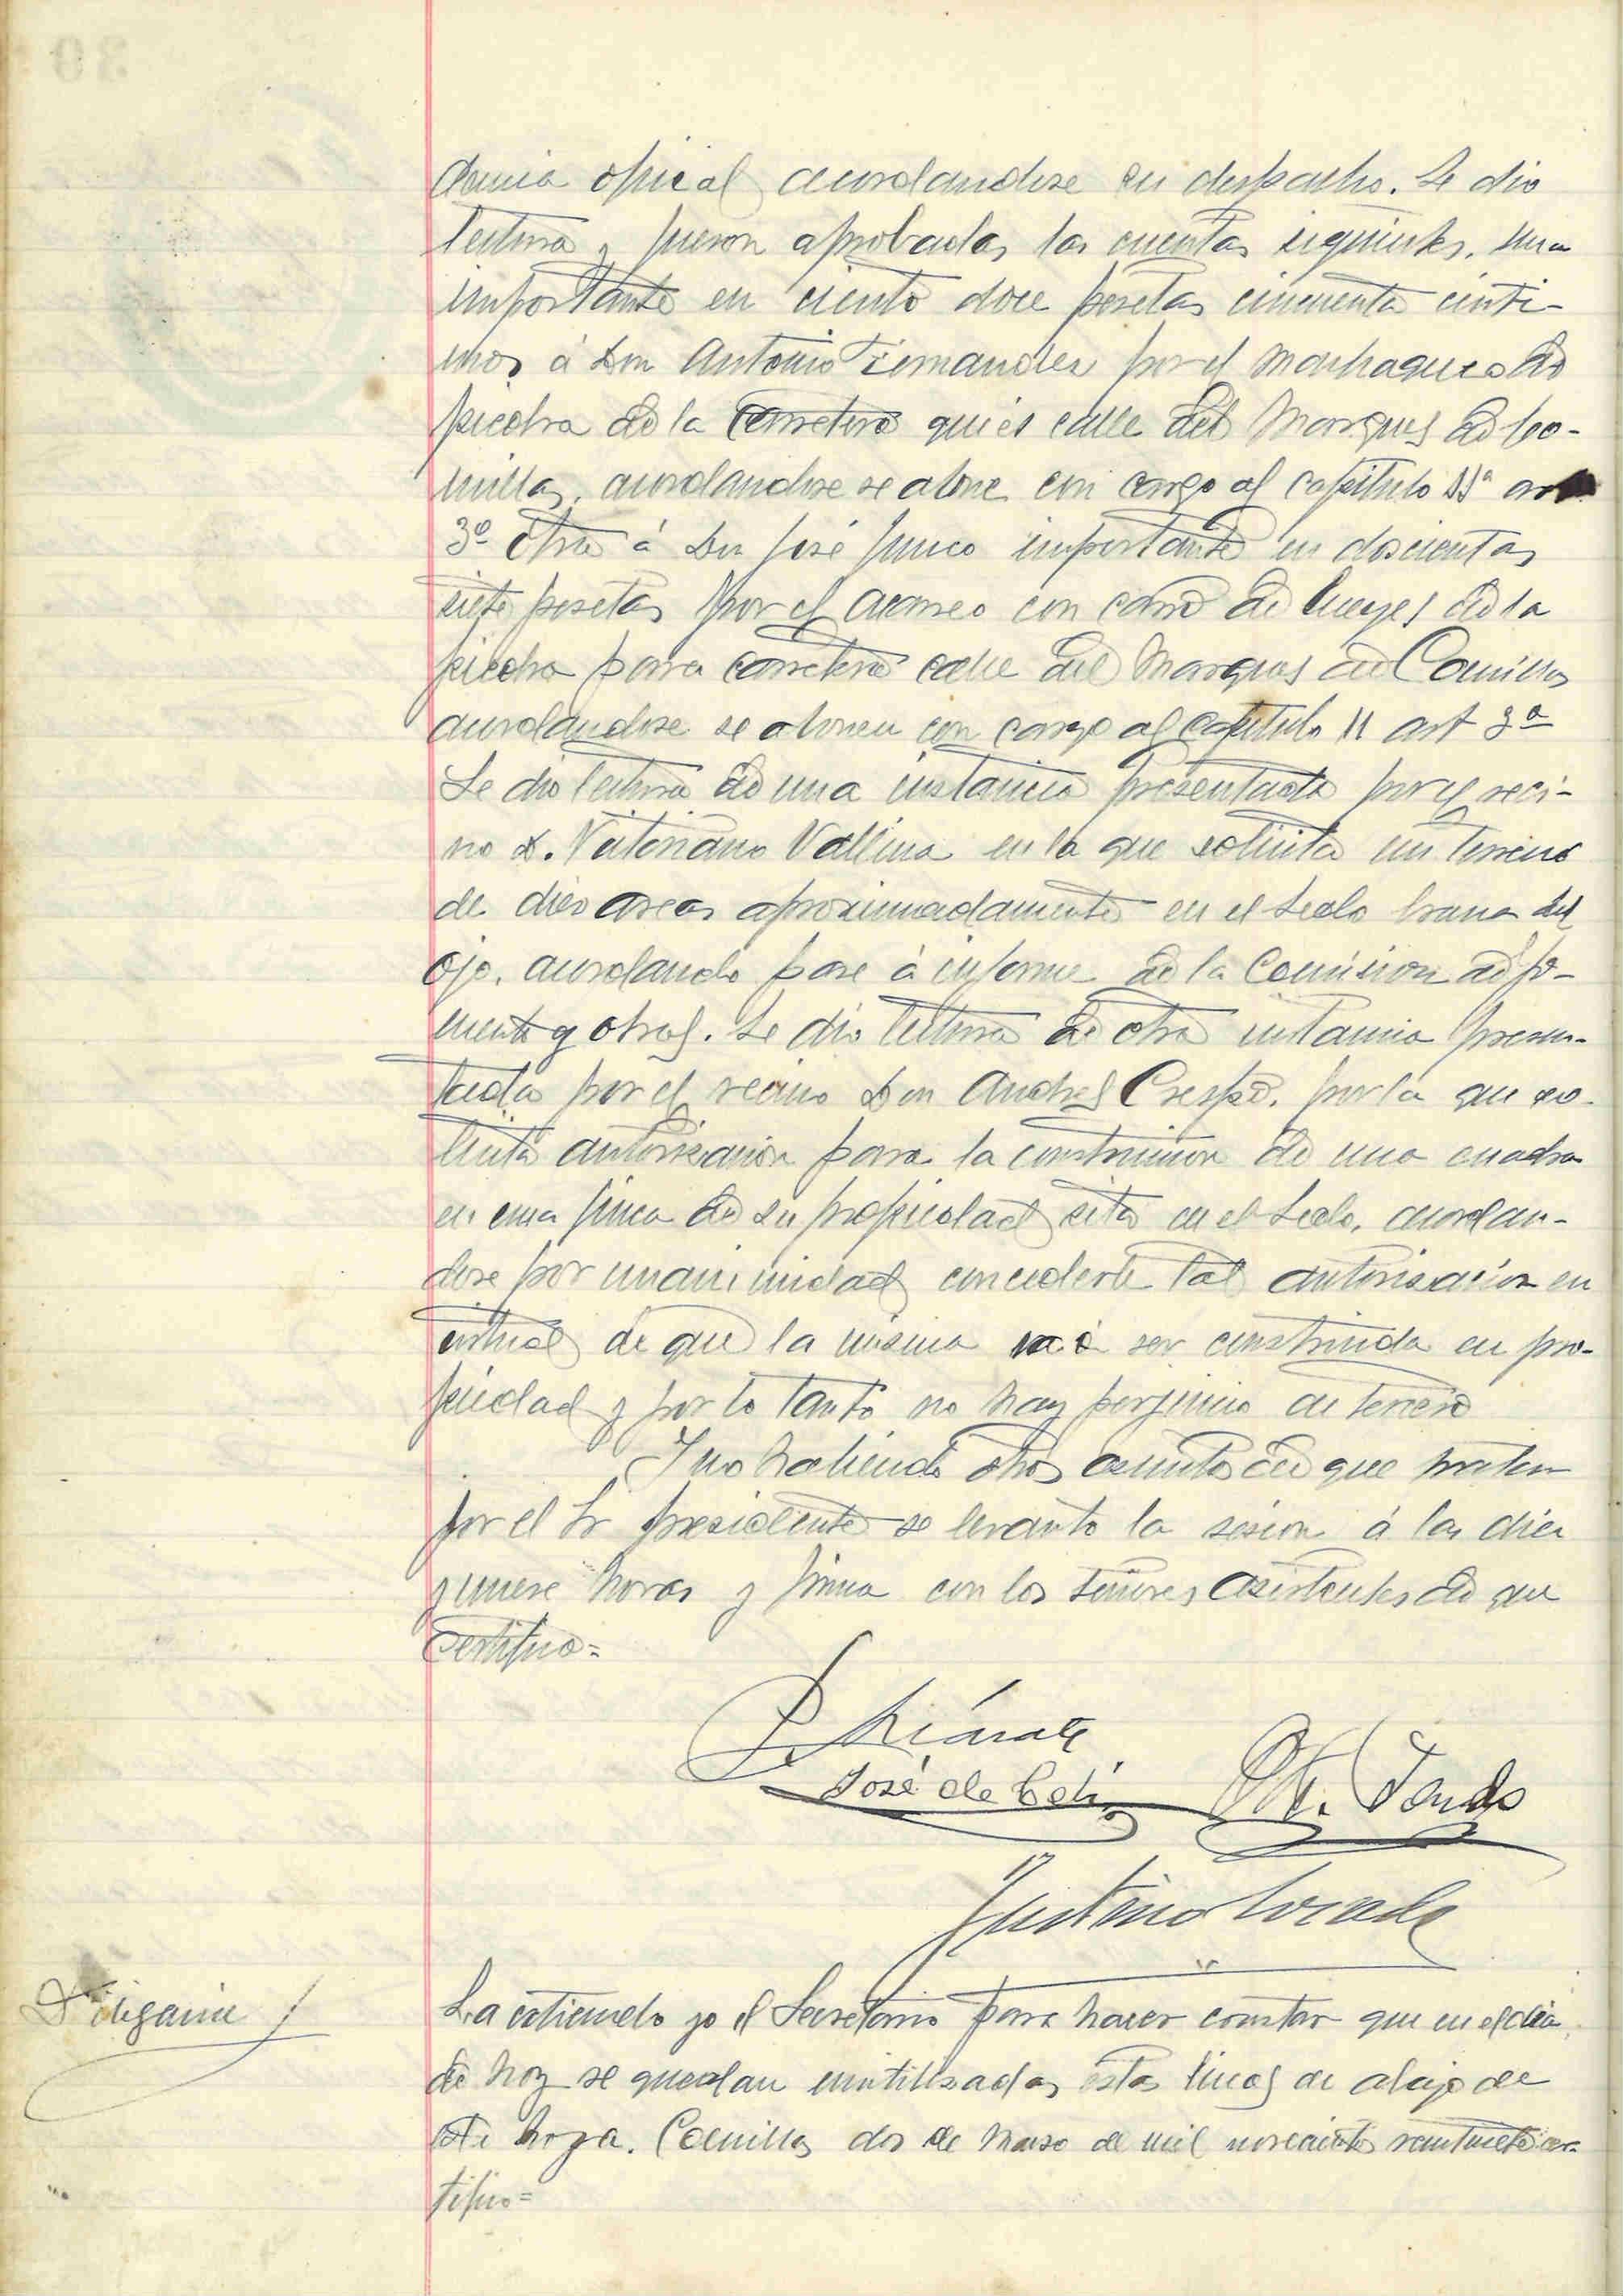 dencia oficial acordandose su despacho. Se dio
lectura y fueron aprobadas las cuentas siguientes. una
importante en ciento doce pesetas cincuenta centi-
mos á Don Antonio Fernandez por el machaqueo de
piedra de la carretera que es calle del Marques de Co-
millas, acordandose se abone con cargo al capitulo 11º art
3º Otra á Don José Junco importante en doscientas
siete pesetas por el acarreo con carro de bueyes de la
piedra para carretera calle del Marques de Comillas
acordandose se abonen con cargo al capitulo 11 art 3º
Se dio lectura de una instancia presentada por el veci-
no D. Vitoriano Vallina en la que solicita un terreno
de diez areas aproximadamente en el Sedo brana del
Ojo, acordando pase á informe de la Comision de fo-
mento y obras. Se dio lectura de otra instancia presen-
tada por el vecino Don Andres Crespo, por la que so-
licita autorizacion para la construcion de una cuadra
en una finca de su propiedad sita en el Sedo, acordan-
dose por unanimidad concederle tal autorizacion en
virtud de que la misma va á ser construida en pro-
piedad y por lo tanto no hay perjuicio de tercero
Y no habiendo otros asuntos de que tratar
por el Sr presidente se levanto la sesion á las diez
y nueve horas y firma con los señores asistentes de que
certifico=
José de Celis
Justino
Diligencia
La extiendo yo el Secretario para hacer constar que en el dia
de hoy se quedan inutilizadas estas lineas de abajo de
esta hoja. Comillas dos de Marzo de mil novecientos veintisiete cer-
tifico=